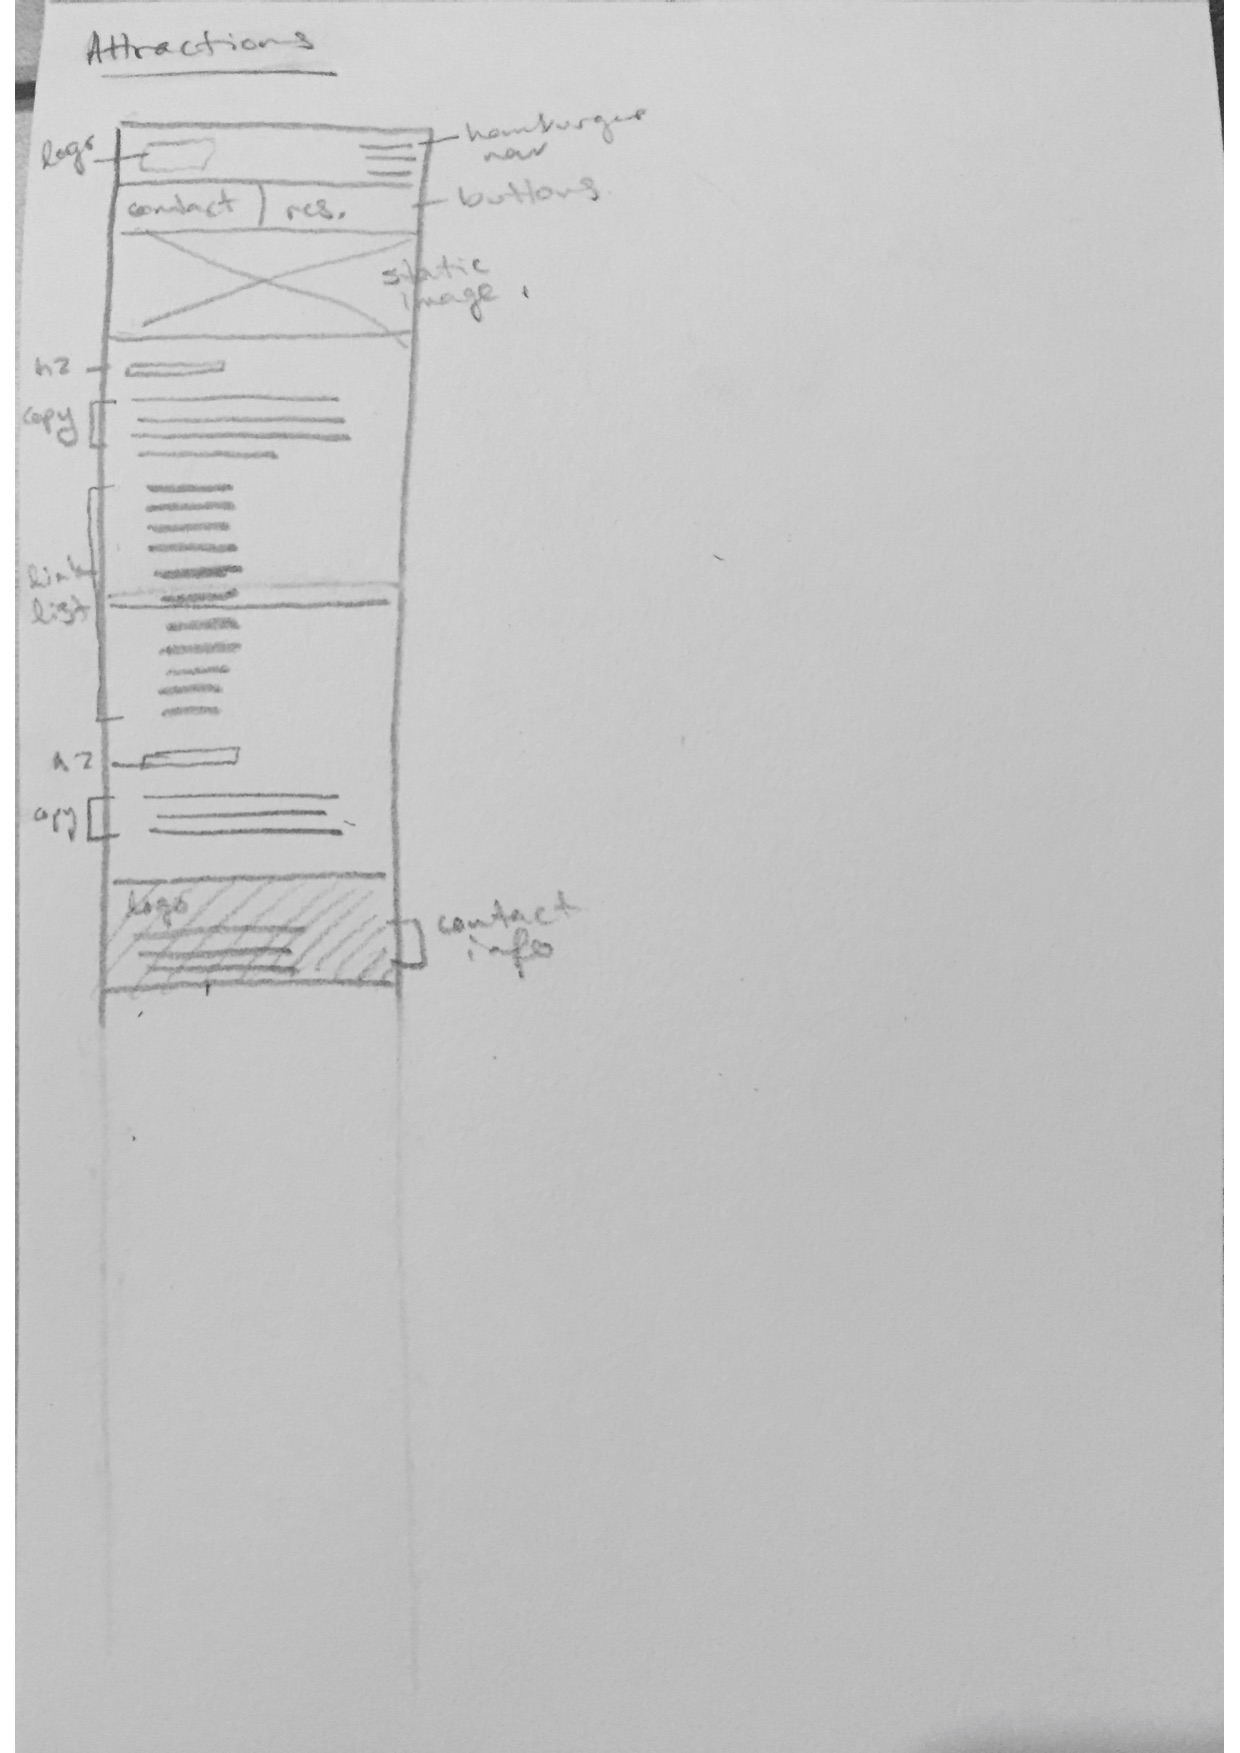 Attractions
logo
hamburger
nav
contact
res.
buttons
static
image
h2
copy
link
list
h2
copy
logo
contact
info